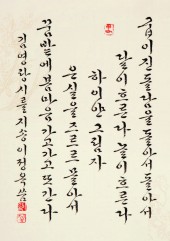 굽이진 돌담을 돌아서 돌아서
달이 흐른다 놀이 흐른다
하이얀 그림자
은실을 즈르르 몰아서
꿈밭에 봄마음 가고가고 또 간다
김영랑 시를 지송 이정옥 씀